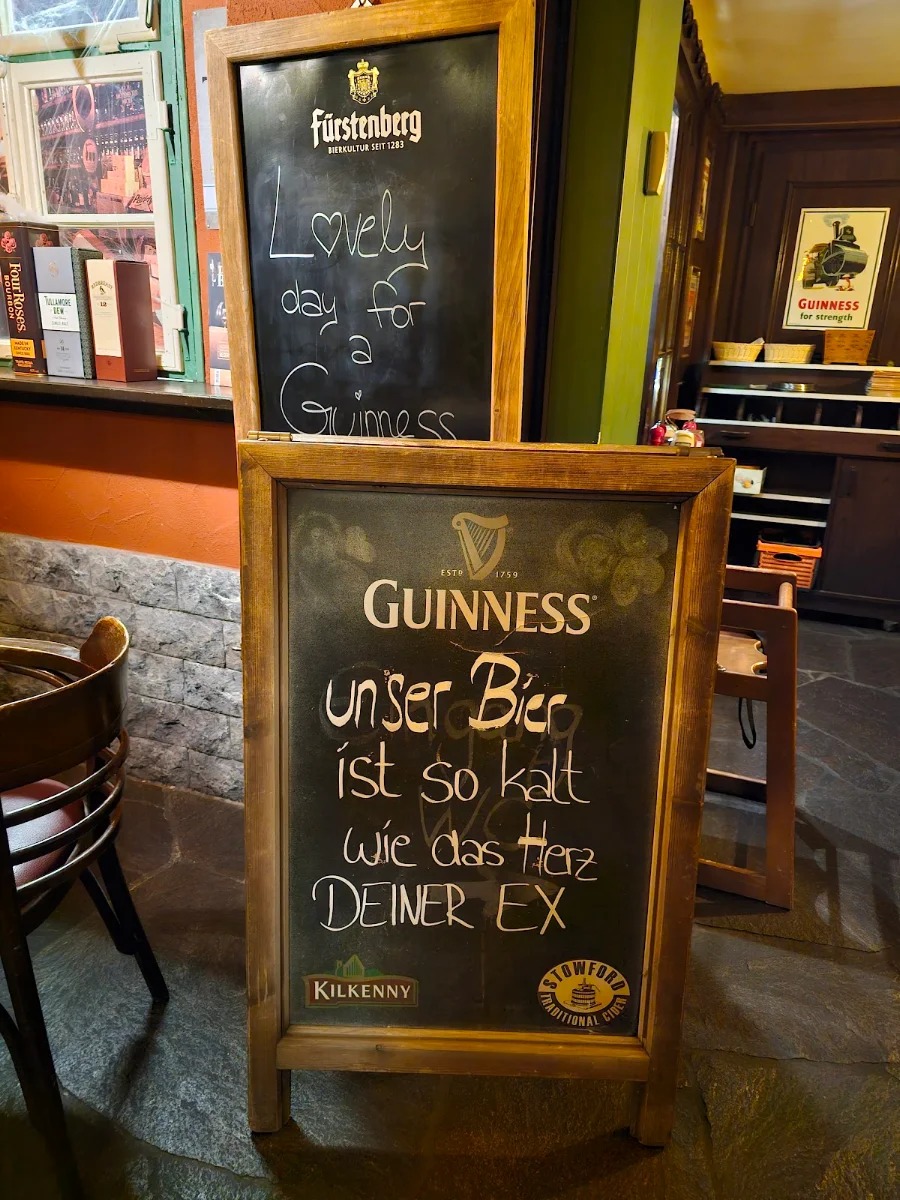 Fürstenberg
BIERKULTUR SEIT 1283
Lovely
day for
a
Guinness
FourRoses
BOURBON
TULLAMORE
DEW
GUINNESS
for strength
ESTD 1759
GUINNESS
unser Bier
ist so kalt
wie das Herz
DEINER EX
KILKENNY
STOWFORD
TRADITIONAL CIDER